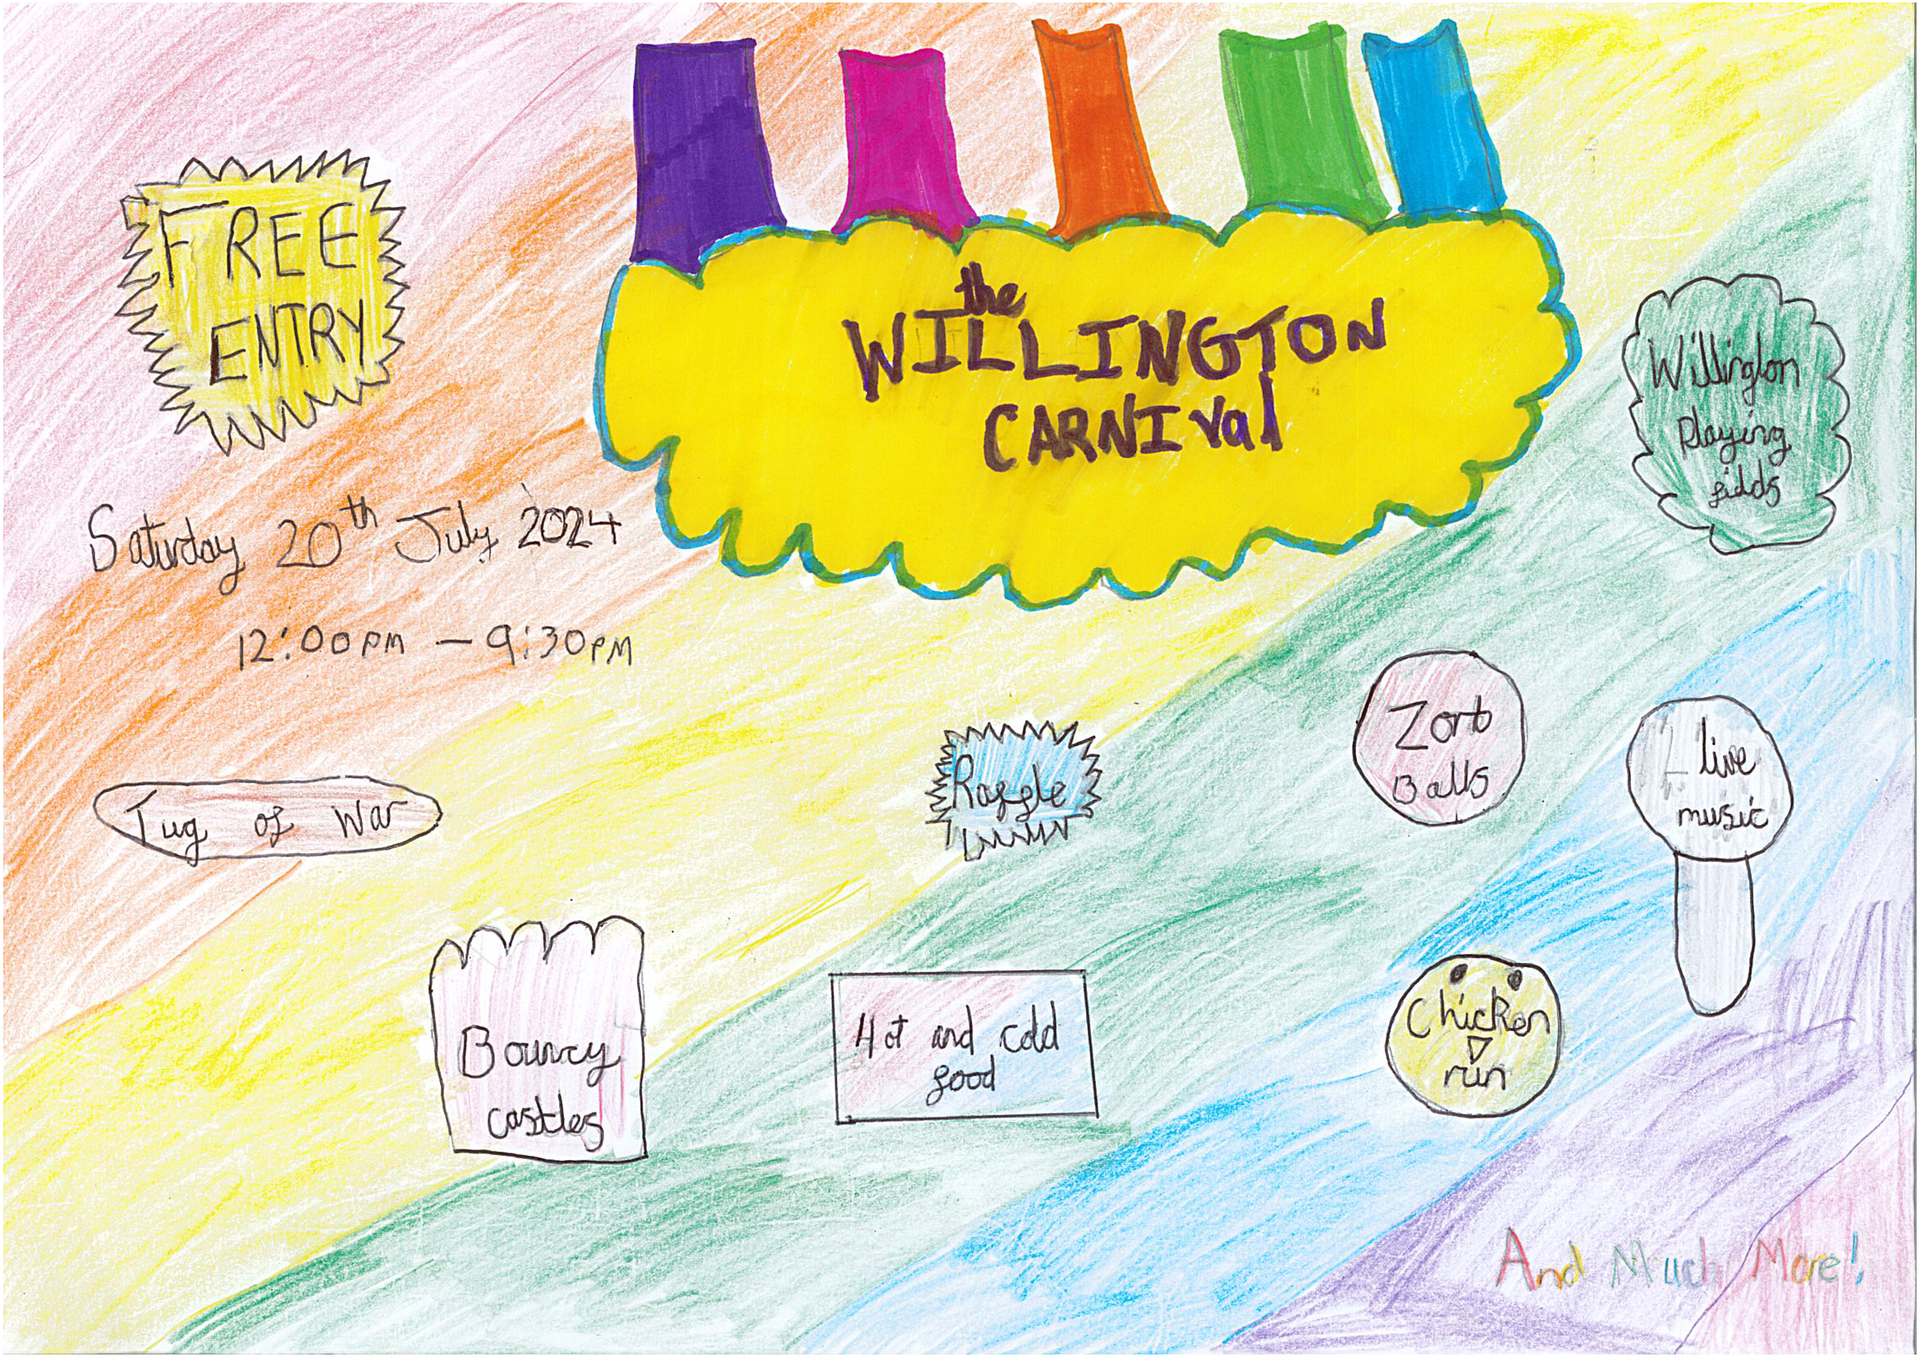 FREE
ENTRY
the
WILLINGTON
CARNIval
Willington
Playing
fields
Saturday 20th July 2024
12:00pm – 9:30pm
Tug of War
Raffle
Zorb
Balls
live
music
Bouncy
castles
Hot and cold
food
Chicken
run
And Much More!